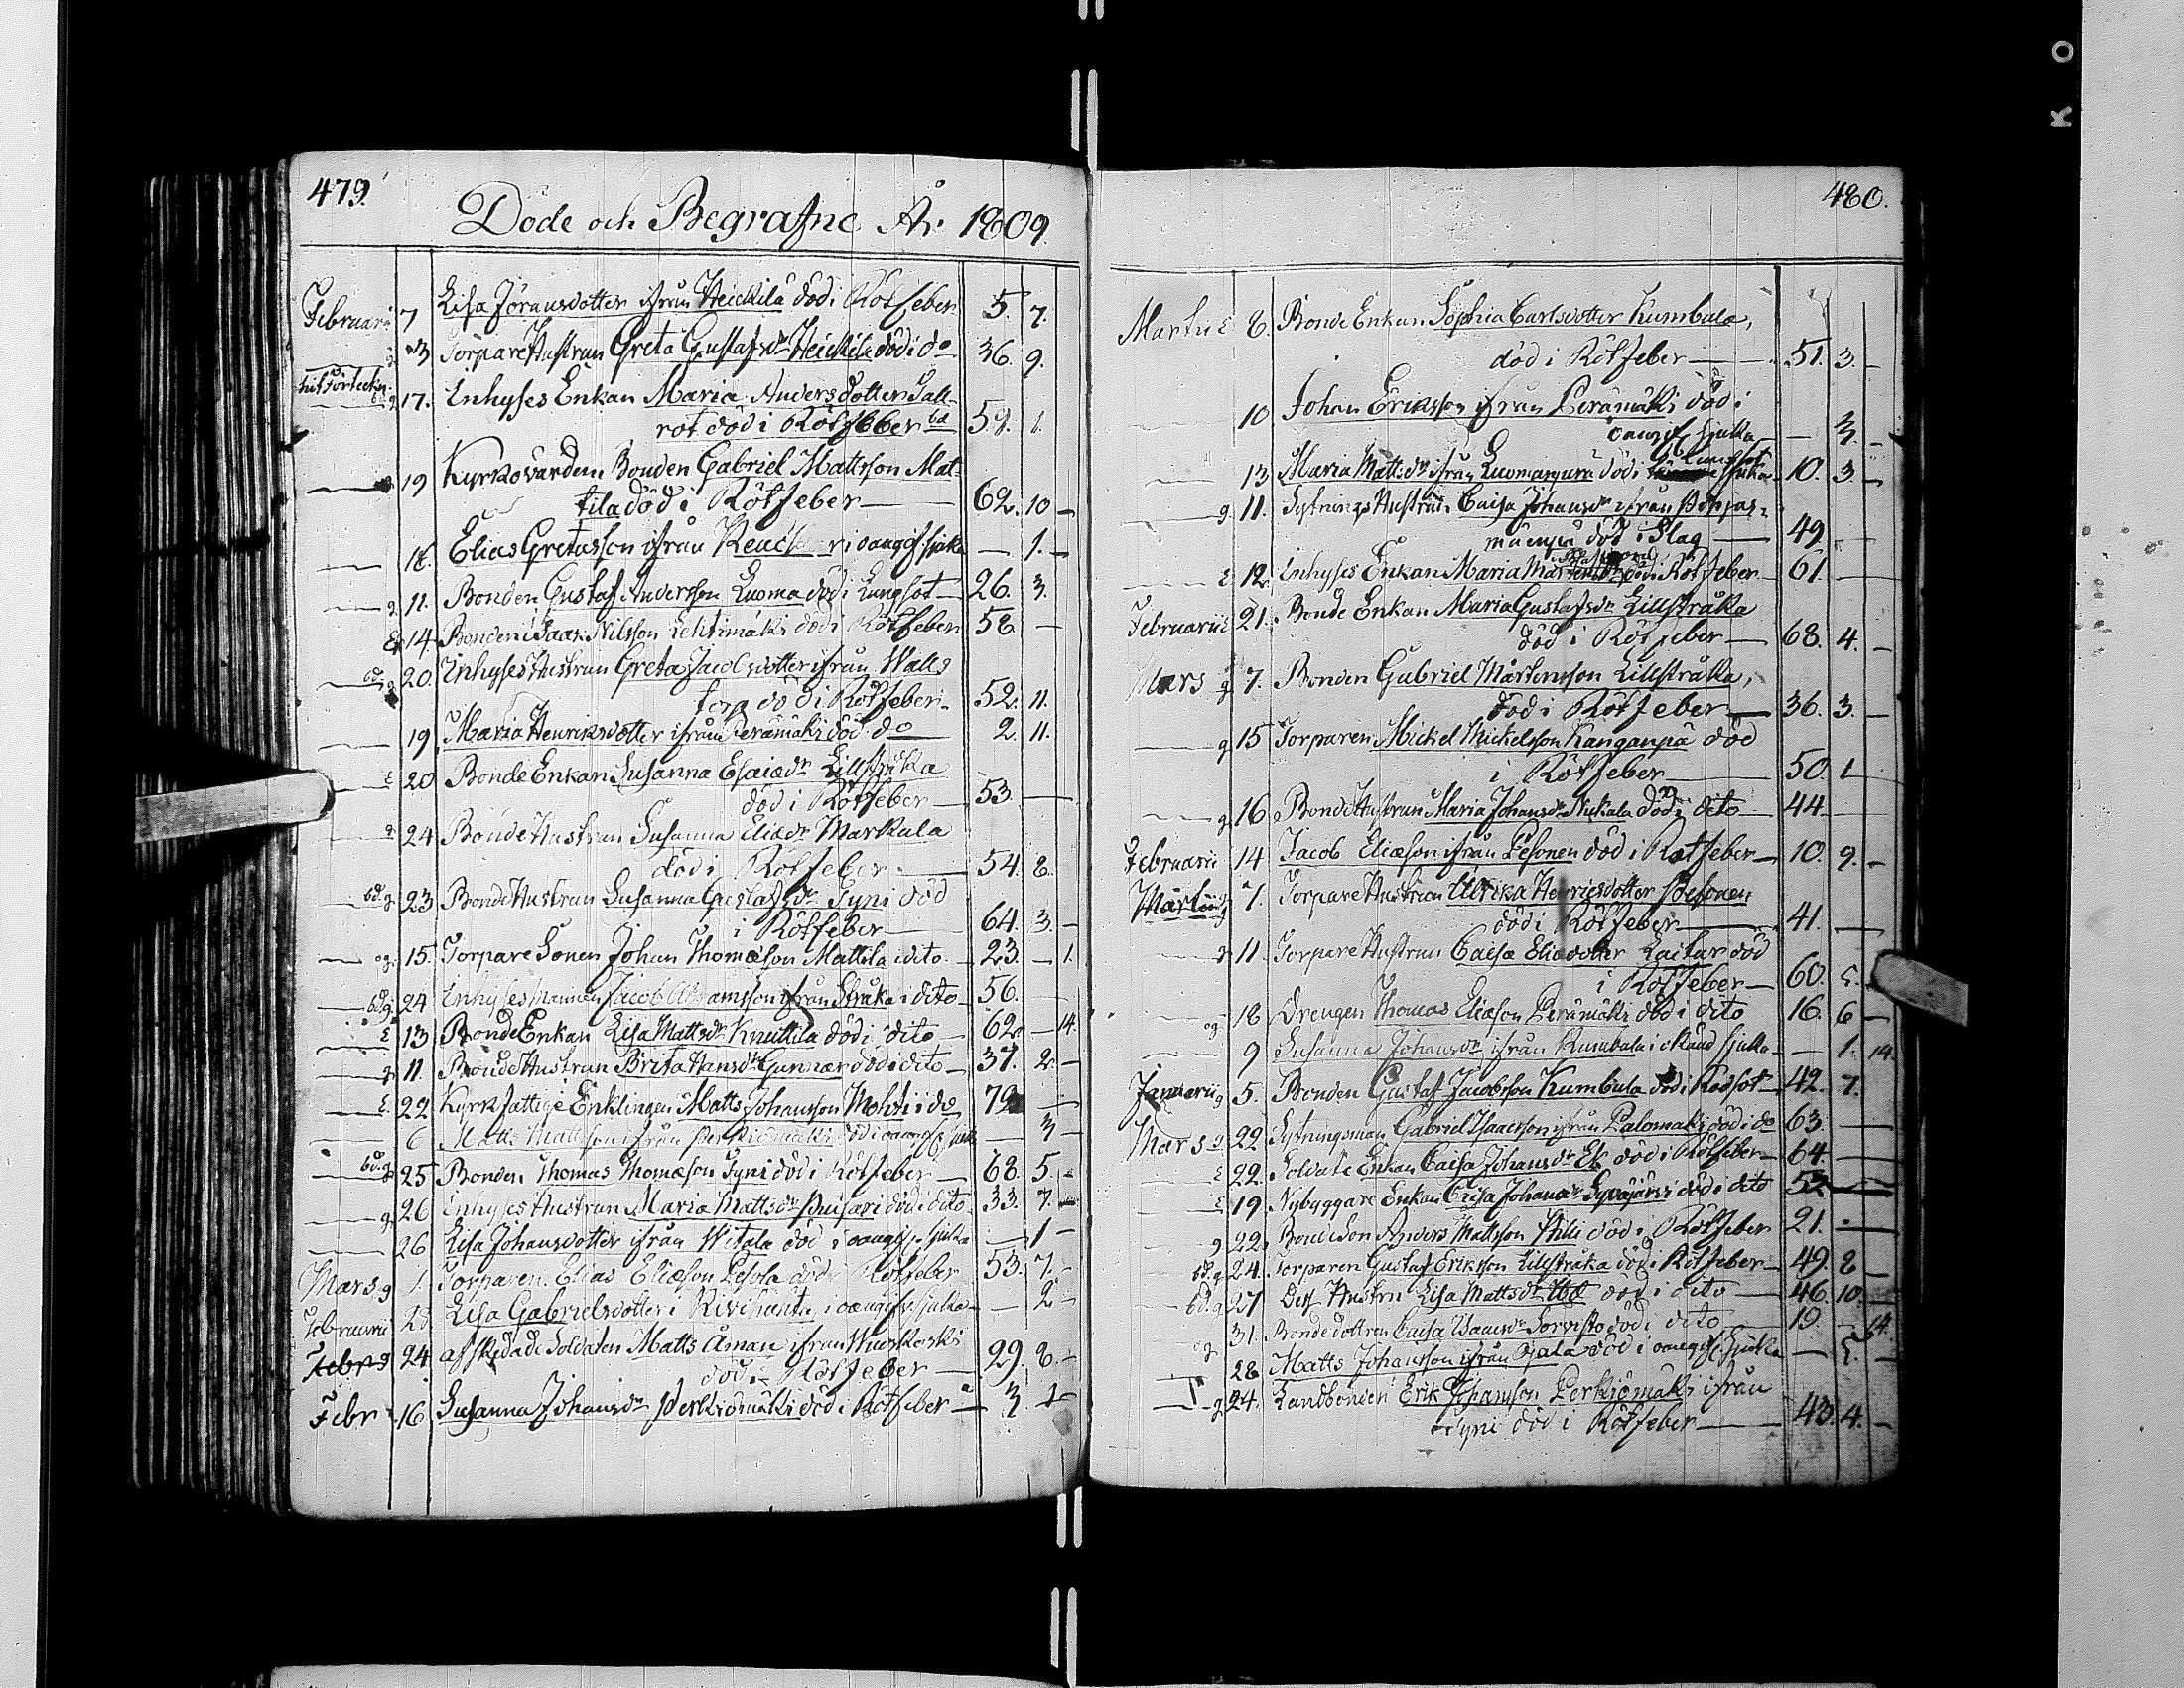 479.
Döde och Begrafne År 1809.
Februarii 7 Lisa Jöransdotter ifrån Heickilä död i Rötfeber 5. 7.
g 3 Torpare Hustrun Greta Gustafsdr Heickilä död i do 36. 9.
g 17. Enhyses Enkan Maria Andersdotter Tall-
rot död i Rötfeber 59. 1.
19 Kyrkovärden Bonden Gabriel Mattsson Mat-
tila död i Rötfeber 62. 10
18. Elias Gretasson ifrån i oangif. sjuka — 1.
g. 11. Bonden Gustaf Andersson Luoma död i Lungsot 26. 3.
14 Bonden Isaac Nilsson Lehtimäki död i Rötfeber 58 —
g 20. Enhyses Hustrun Greta Jacobsdotter ifrån Walls
död i Rötfeber 52. 11.
19 Maria Henriksdotter ifrån Perämäki död do 2. 11.
E 20 Bonde Enkan Susanna Esaiædr Lillstråka
död i Rötfeber 53. —
g 24 Bonde Hustrun Susanna Eliædr Markula
död i Rötfeber 54. 8.
bd. g 23 Bonde Hustrun Susanna Gustafsdr Tyni död
i Rötfeber 64. 3.
og. 15. Torpare Sonen Johan Thomæson Mattila i dito 23. — 1.
bd. g. 24 Enhyses Mannen Jacob Abramsson ifrån Stråka i dito 56.
E 13 Bonde Enkan Lisa Mattsdr Knuttila död i dito 62. — 14.
g 11. Bonde Hustrun Brita Hansdr Gunnar död i dito 37. 2.
E. 22 Kyrkfattige Enklingen Matts Johansson Mohti i do 79 —
6 Matts Mattsson ifrån Perkiömäki död i oangif. sjuka — 3
bd. g 25 Bonden Thomas Thomæson Tyni död i Rötfeber 68. 5.
g 26 Enhyses Hustrun Maria Mattsdr Puisari död i dito 33. 7.
26 Lisa Johansdotter ifrån Witala död i oangif. sjuka — 1
Mars g 1. Torparen Elias Eliæson Pesola död i Rötfeber 53. 7.
Februarii 23 Lisa Gabrielsdotter i oangifv. sjuka — 2
Febr g 24 afskedade Soldaten Matts Åman ifrån
död i Rötfeber 29. 8.
Febr 16. Susanna Johansdr Perkiömäki död i Rötfeber 3. 1
480.
Martii E 8. Bonde Enkan Sophia Carlsdotter Kumbula,
död i Rötfeber 51. 3.
10 Johan Eriksson ifrån Perämäki död i
oangif. sjuka — 3.
13 Maria Mattsdr ifrån Luomanperä död i 10. 3.
g. 11. Sytnings Hustrun Caisa Johansdr ifrån
död i Slag 49
E 12. Enhyses Enkan Maria död i Rötfeber 61.
Februarii E 21. Bonde Enkan Maria Gustafsdr Lillstråka
död i Rötfeber 68. 4.
Mars g 7. Bonden Gabriel Mårtensson Lillstråka,
död i Rötfeber 36. 3.
g 15 Torparen Mickel Mickelsson Kanganpä död
i Rötfeber 50. 1
g 16 Bonde Hustrun Maria Johansdr Nukala död i dito 44
Februarii 14 Jacob Eliæson ifrån Pesonen död i Rötfeber 10. 9.
Martii g 1. Torpare Hustrun Ulrika Henricsdotter Pesonen
död i Rötfeber 41.
g 11. Torpare Hustrun Caisa Eliædotter Laitar död
i Rötfeber 60. 5.
og 18 Drengen Thomas Eliæson Perämäki död i dito 16. 6
9 Susanna Johansdr ifrån Kumbula i okänd sjuka — 1. 14.
Januarii g 5. Bonden Gustaf Jacobsson Kumbula död i Rödsot 42. 7.
Mars g 22 Sytningsman Gabriel Isaacsson ifrån Palomäki död i do 63.
E 22. Soldats Enkan Caisa Johansdr Ek död i Rötfeber 64
E 19. Nybyggare Enkan Caisa Johansdr Syväjärvi död i dito 52
g 22. Bonde Son Anders Mattsson död i Rötfeber 21.
bd. g 24. Torparen Gustaf Eriksson Lillstråka död i Rötfeber 49. 2
bd. g 27 Dess Hustru Lisa Mattsdr död i dito 46. 10.
og 31. Bonde dottren Caisa Isaacsdr Sorvisto död i dito 19. — 14.
28 Matts Johansson ifrån Ojala död i oangif. sjuka — 5.
g 24. Landbonden Erik Johansson Perkiömäki ifrån
Tyni död i Rötfeber 43. 4.
K O